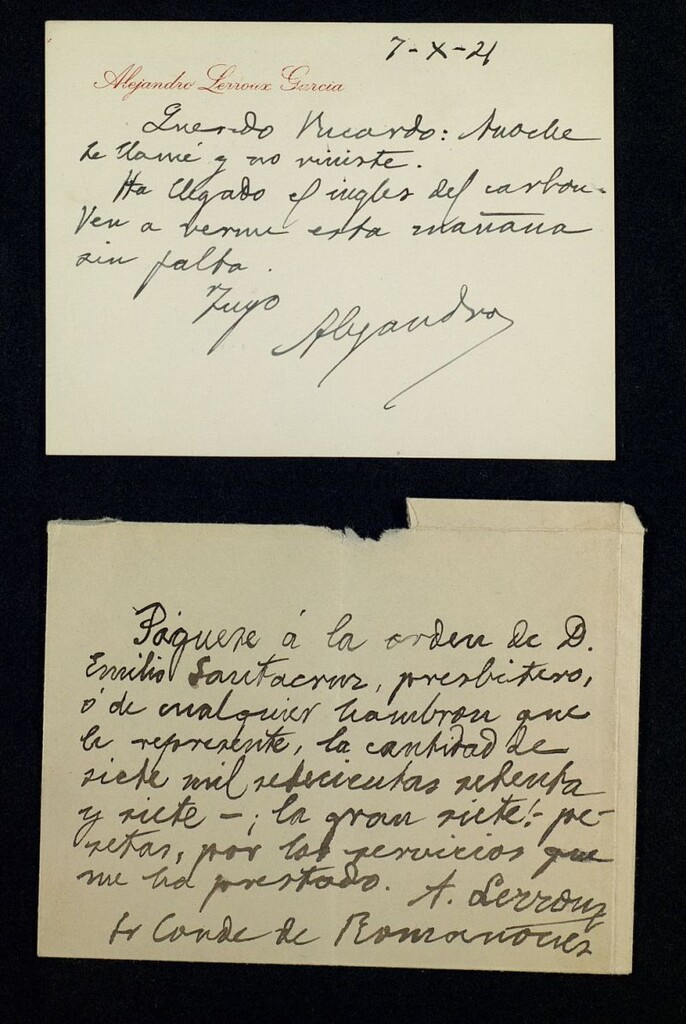 7-X-21
Alejandro Lerroux Garcia
Querido Ricardo: Anoche
te llamé y no viniste.
Ha llegado el ingles del carbon.
Ven a verme esta mañana
sin falta.
Tuyo
Alejandro
Páguese á la orden de D.
Emilio Santacruz, presbitero,
ó de cualquier hambron que
le represente, la cantidad de
siete mil setecientas setenta
y siete -¡la gran siete!- pe-
setas, por los servicios que
me ha prestado. A. Lerroux
Sr Conde de Romanones